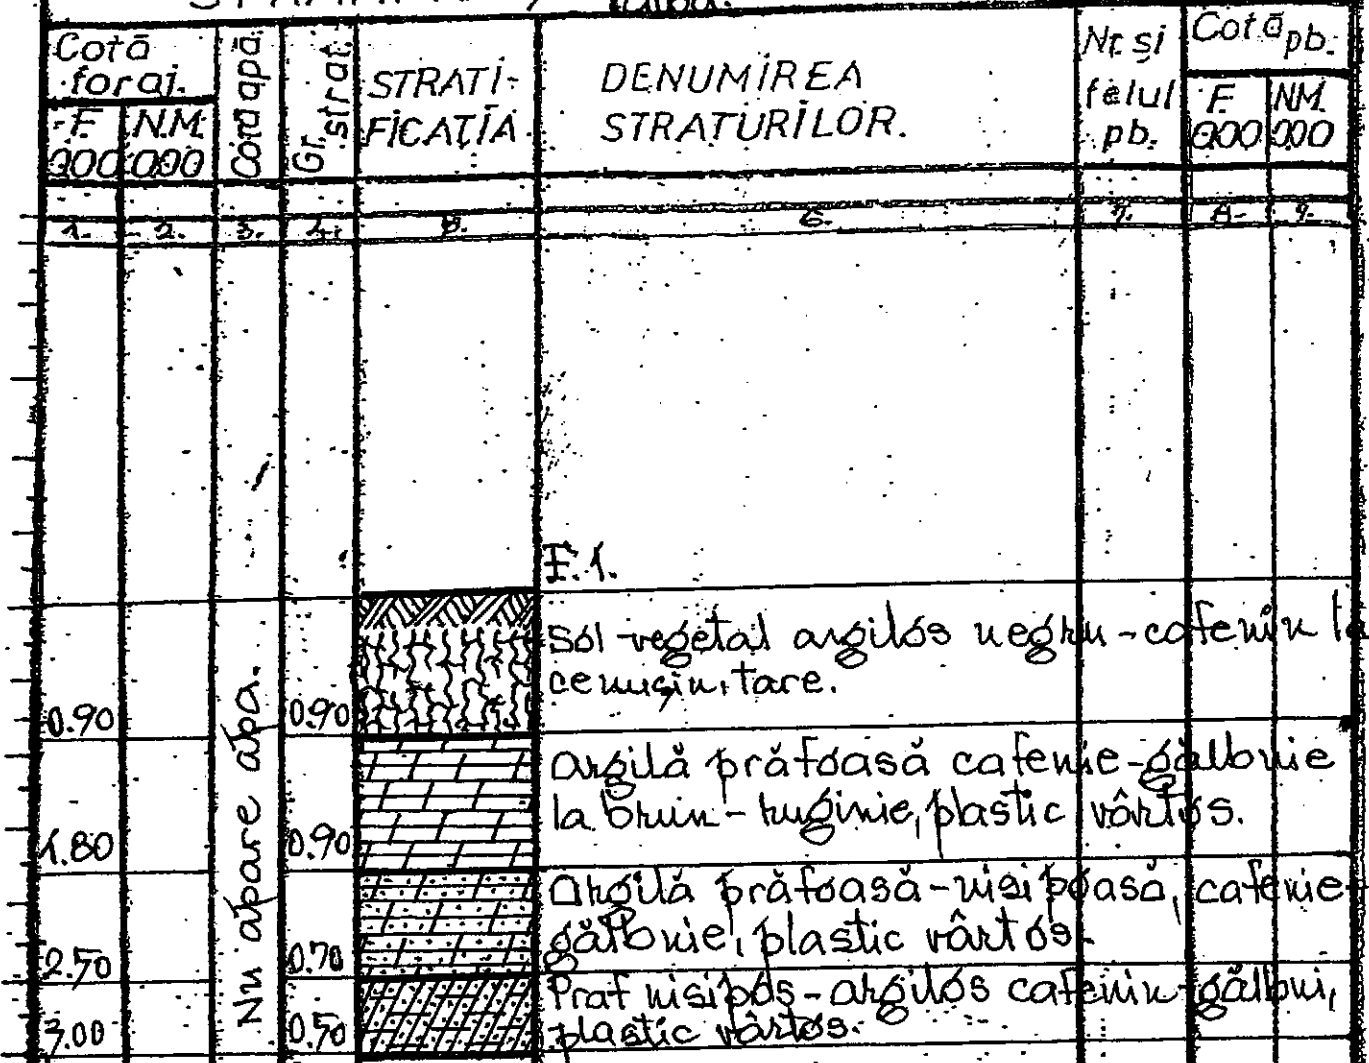 Cotă foraj.
F. 0.00
N.M. 000
Cota apă.
Gr. strat.
STRATIFICAȚIA
DENUMIREA
STRATURILOR.
Nr. și
felul
pb.
Cotă pb.
F. 0.00
NM. 000
1. 2. 3. 4. 5. 6. 7. 8. 9.
F.1.
Sol vegetal argilos negru-cafeniu la
cenușiu, tare.
0.90 0.90
Argilă prăfoasă cafenie-gălbuie
la brun-ruginie, plastic vârtos.
1.80 0.90
Argilă prăfoasă-nisipoasă, cafenie-
gălbuie, plastic vârtos.
2.50 0.70
Praf nisipos-argilos cafeniu-gălbui,
plastic vârtos.
3.00 0.50
Nu apare apa.